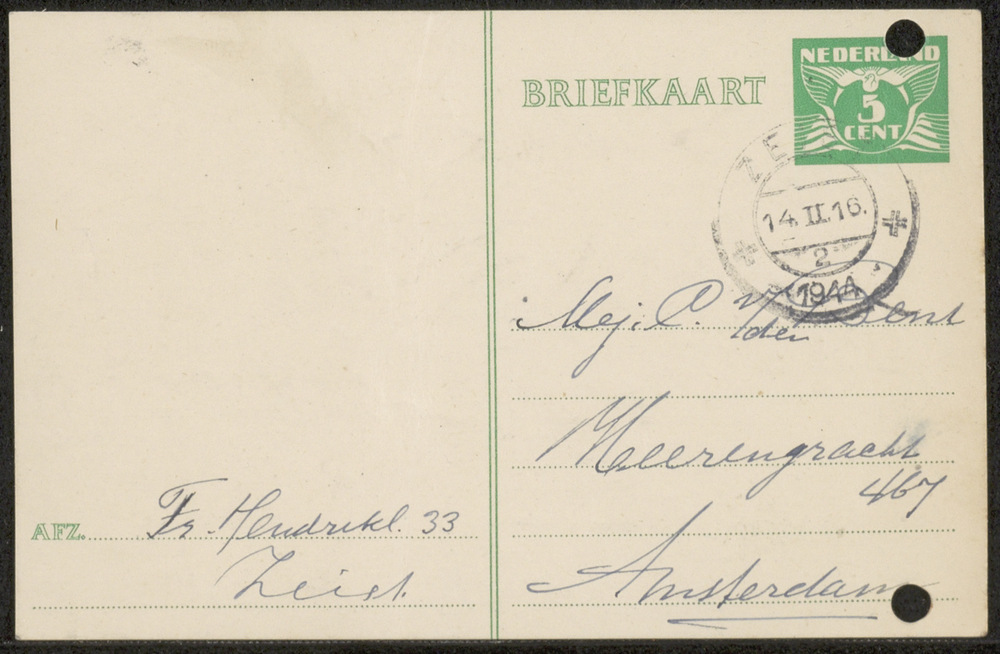 BRIEFKAART
NEDERLAND
5
CENT
ZE
14.II.16.
2
1944
Mej. C. v
der
Heerengracht
467
Amsterdam
AFZ. Fr. Hendrikl. 33
Zeist.